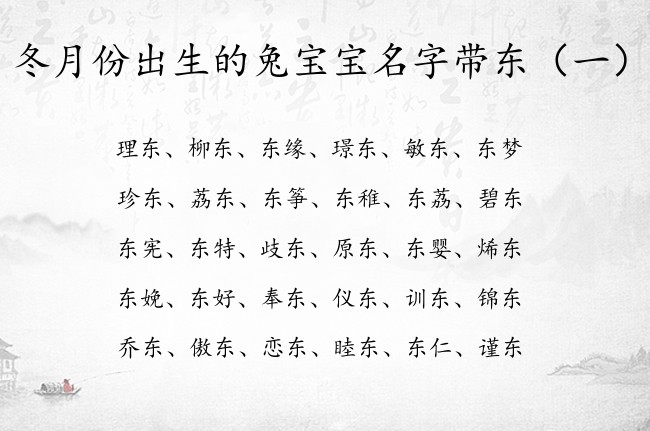 冬月份出生的兔宝宝名字带东（一）
理东、柳东、东缘、璟东、敏东、东梦
珍东、荔东、东筝、东稚、东荔、碧东
东宪、东特、歧东、原东、东婴、烯东
东娩、东好、奉东、仪东、训东、锦东
乔东、傲东、恋东、睦东、东仁、谨东